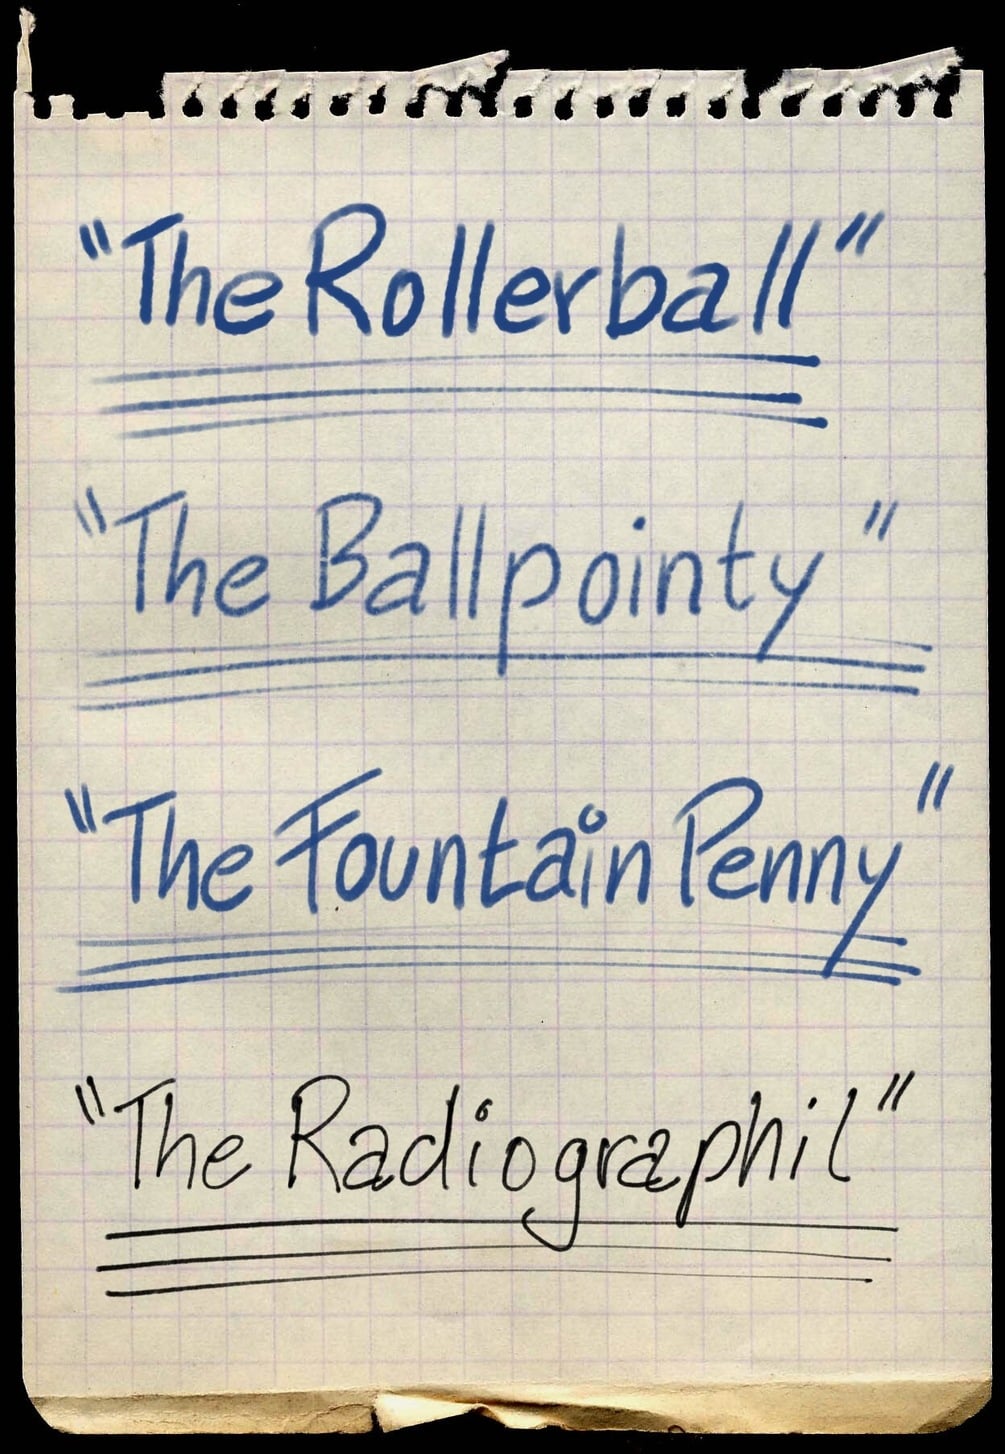 "The Rollerball"
"The Ballpointy"
"The Fountain Penny"
"The Radiographil"